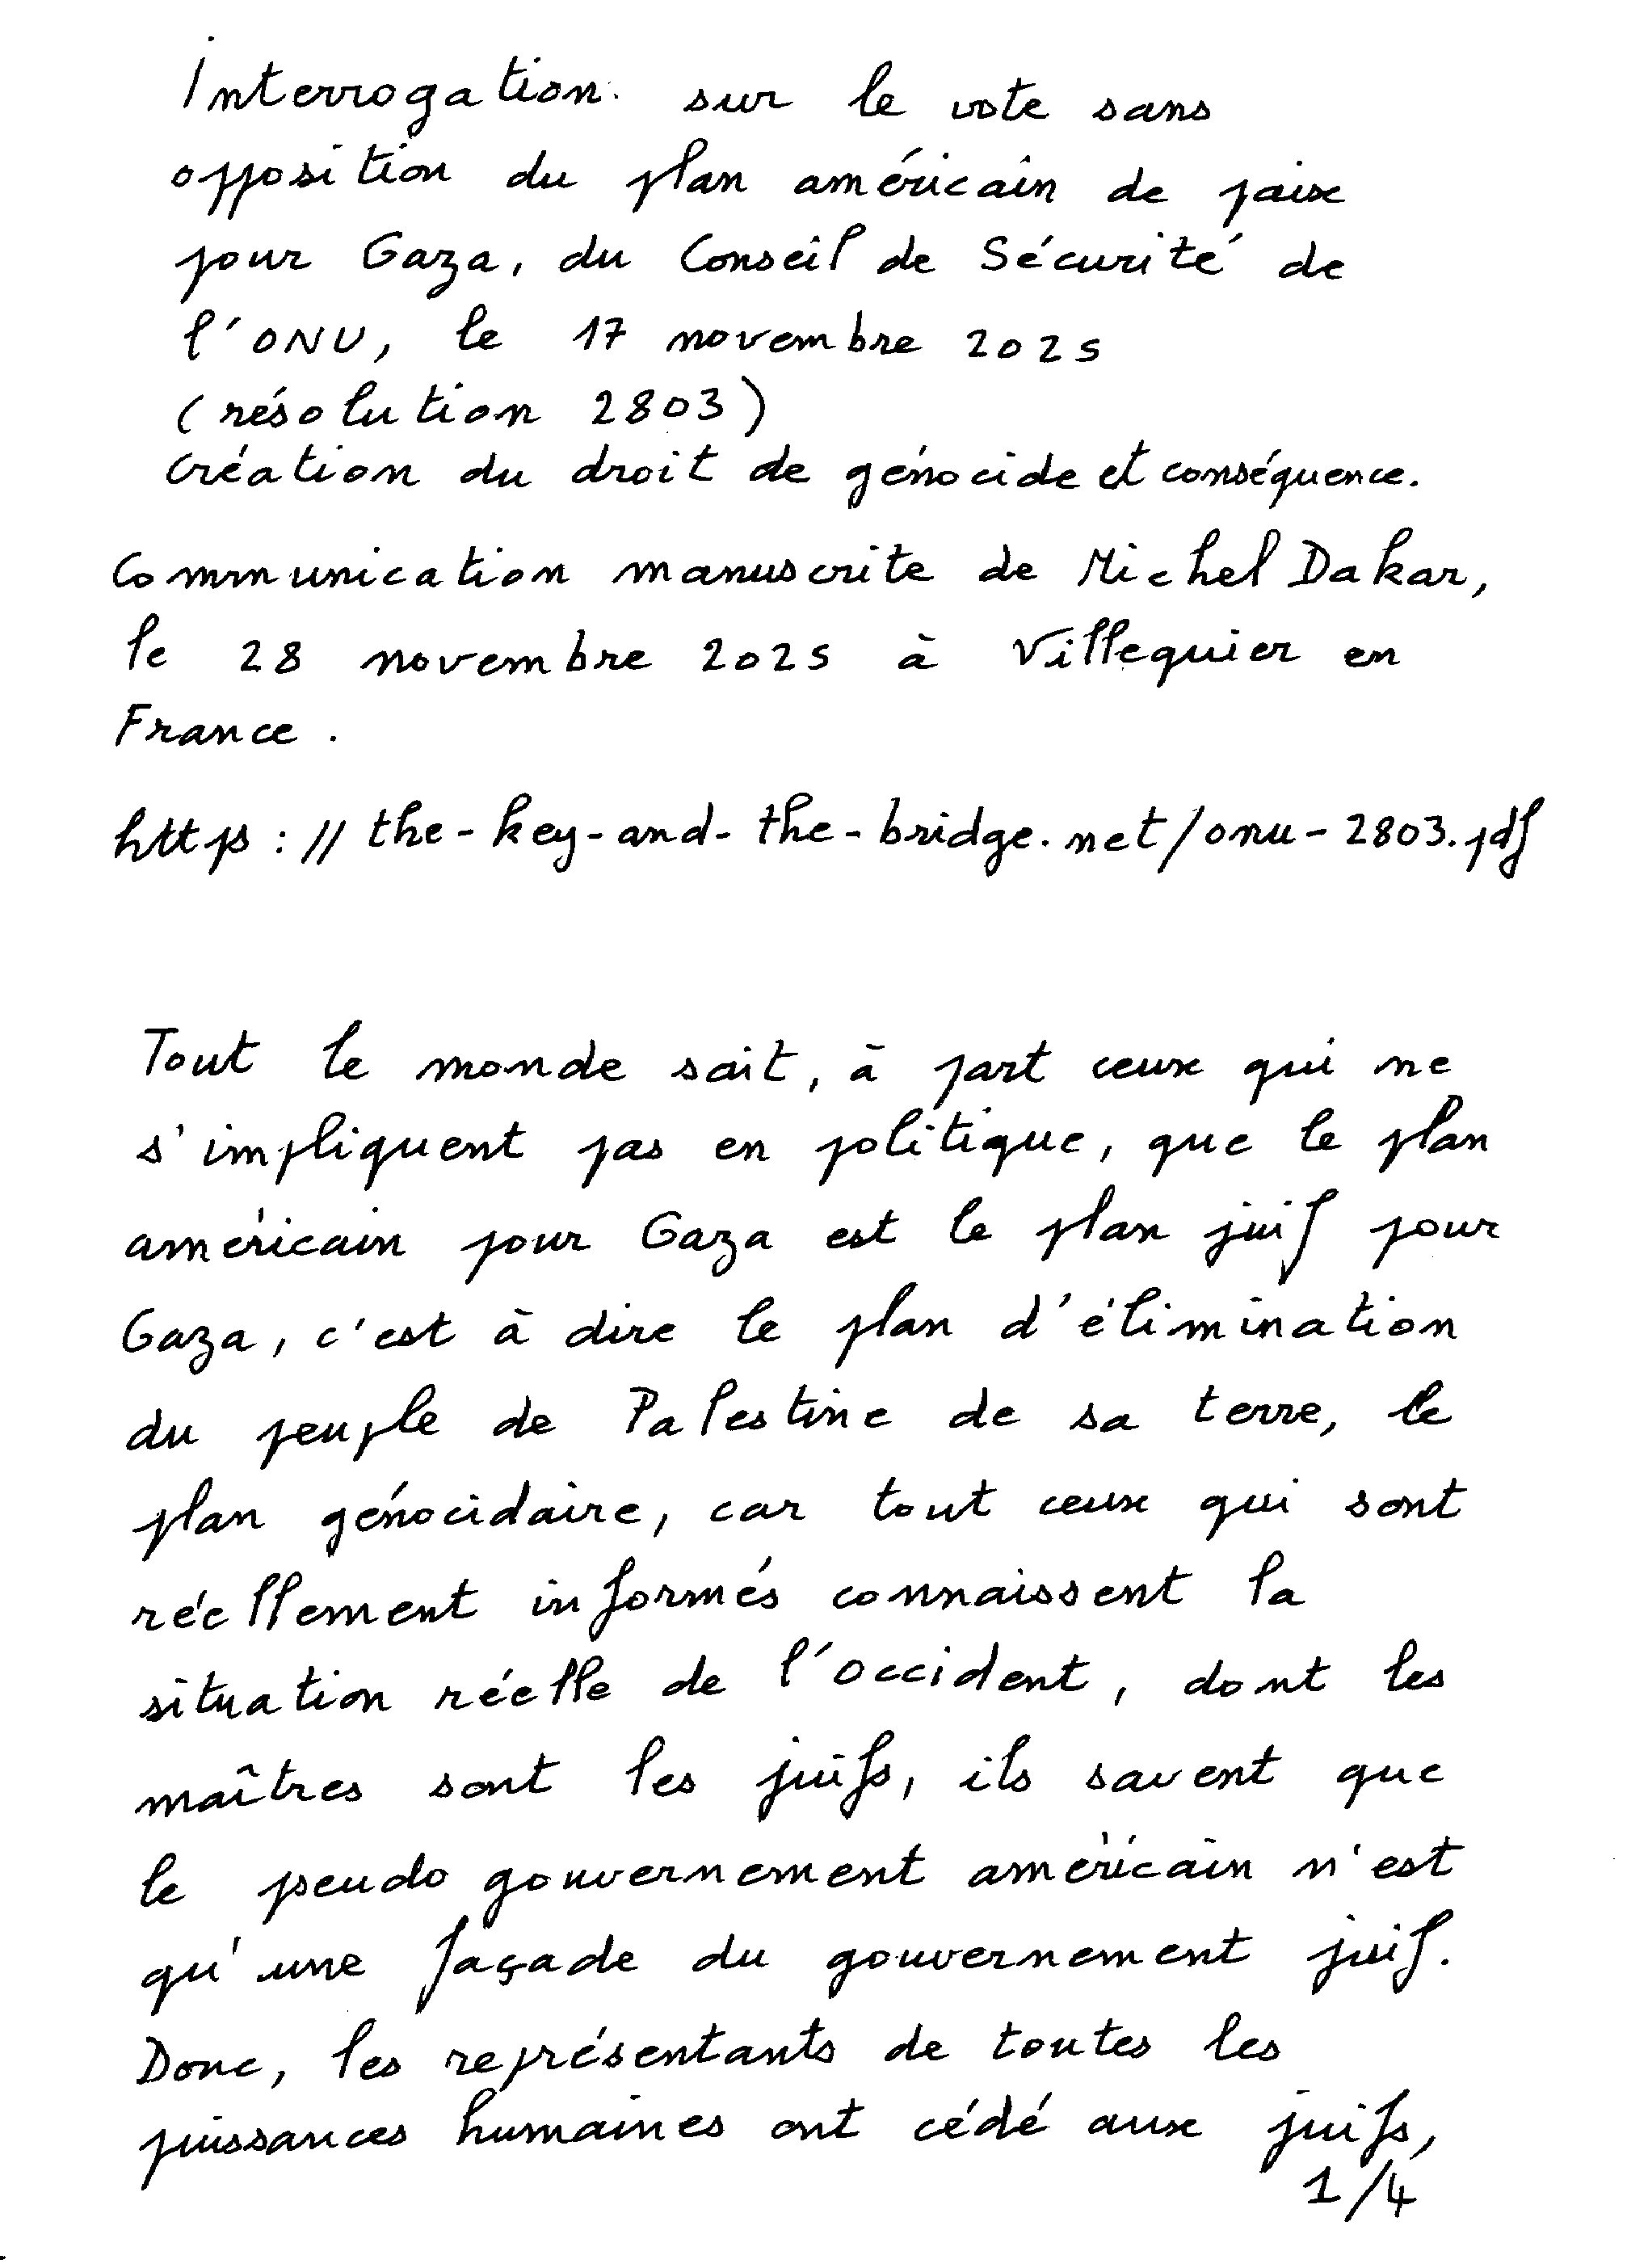 Interrogation sur le vote sans
opposition du plan américain de paix
pour Gaza, du Conseil de Sécurité de
l'ONU, le 17 novembre 2025
(résolution 2803)
Création du droit de génocide et conséquence.
Communication manuscrite de Michel Dakar,
le 28 novembre 2025 à Villequier en
France.
https://the-key-and-the-bridge.net/onu-2803.pdf
Tout le monde sait, à part ceux qui ne
s'impliquent pas en politique, que le plan
américain pour Gaza est le plan juif pour
Gaza, c'est à dire le plan d'élimination
du peuple de Palestine de sa terre, le
plan génocidaire, car tout ceux qui sont
réellement informés connaissent la
situation réelle de l'Occident, dont les
maîtres sont les juifs, ils savent que
le pseudo gouvernement américain n'est
qu'une façade du gouvernement juif.
Donc, les représentants de toutes les
puissances humaines ont cédé aux juifs,
1/4